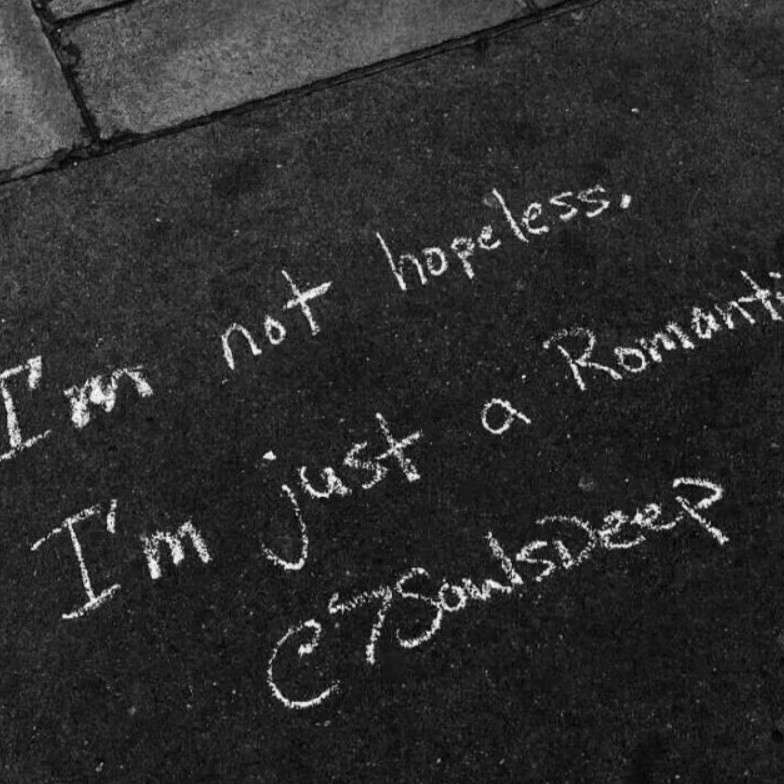 I'm not hopeless.
I'm just a Romanti
@7SoulsDeep